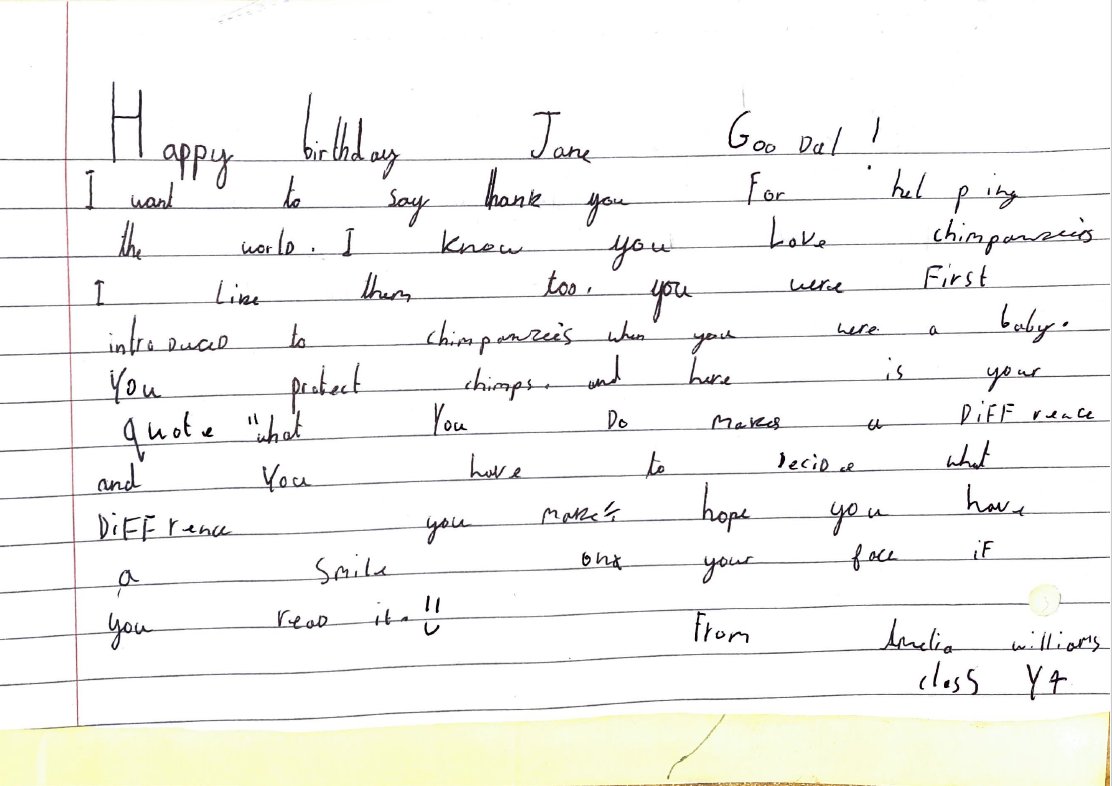 Happy birthday Jane Goo Dal !
I want to say thank you For helping
the world. I know you Love chimpanzeeis
I Like them too. you were First
introduced to chimpanzeeis when you were a baby.
You protect chimps. and here is your
quote "what You Do makes a DiFFrence
and You have to decide what
DiFFrence you make" hope you have
a smile on your face iF
you read it.
From Amelia williams
class Y4